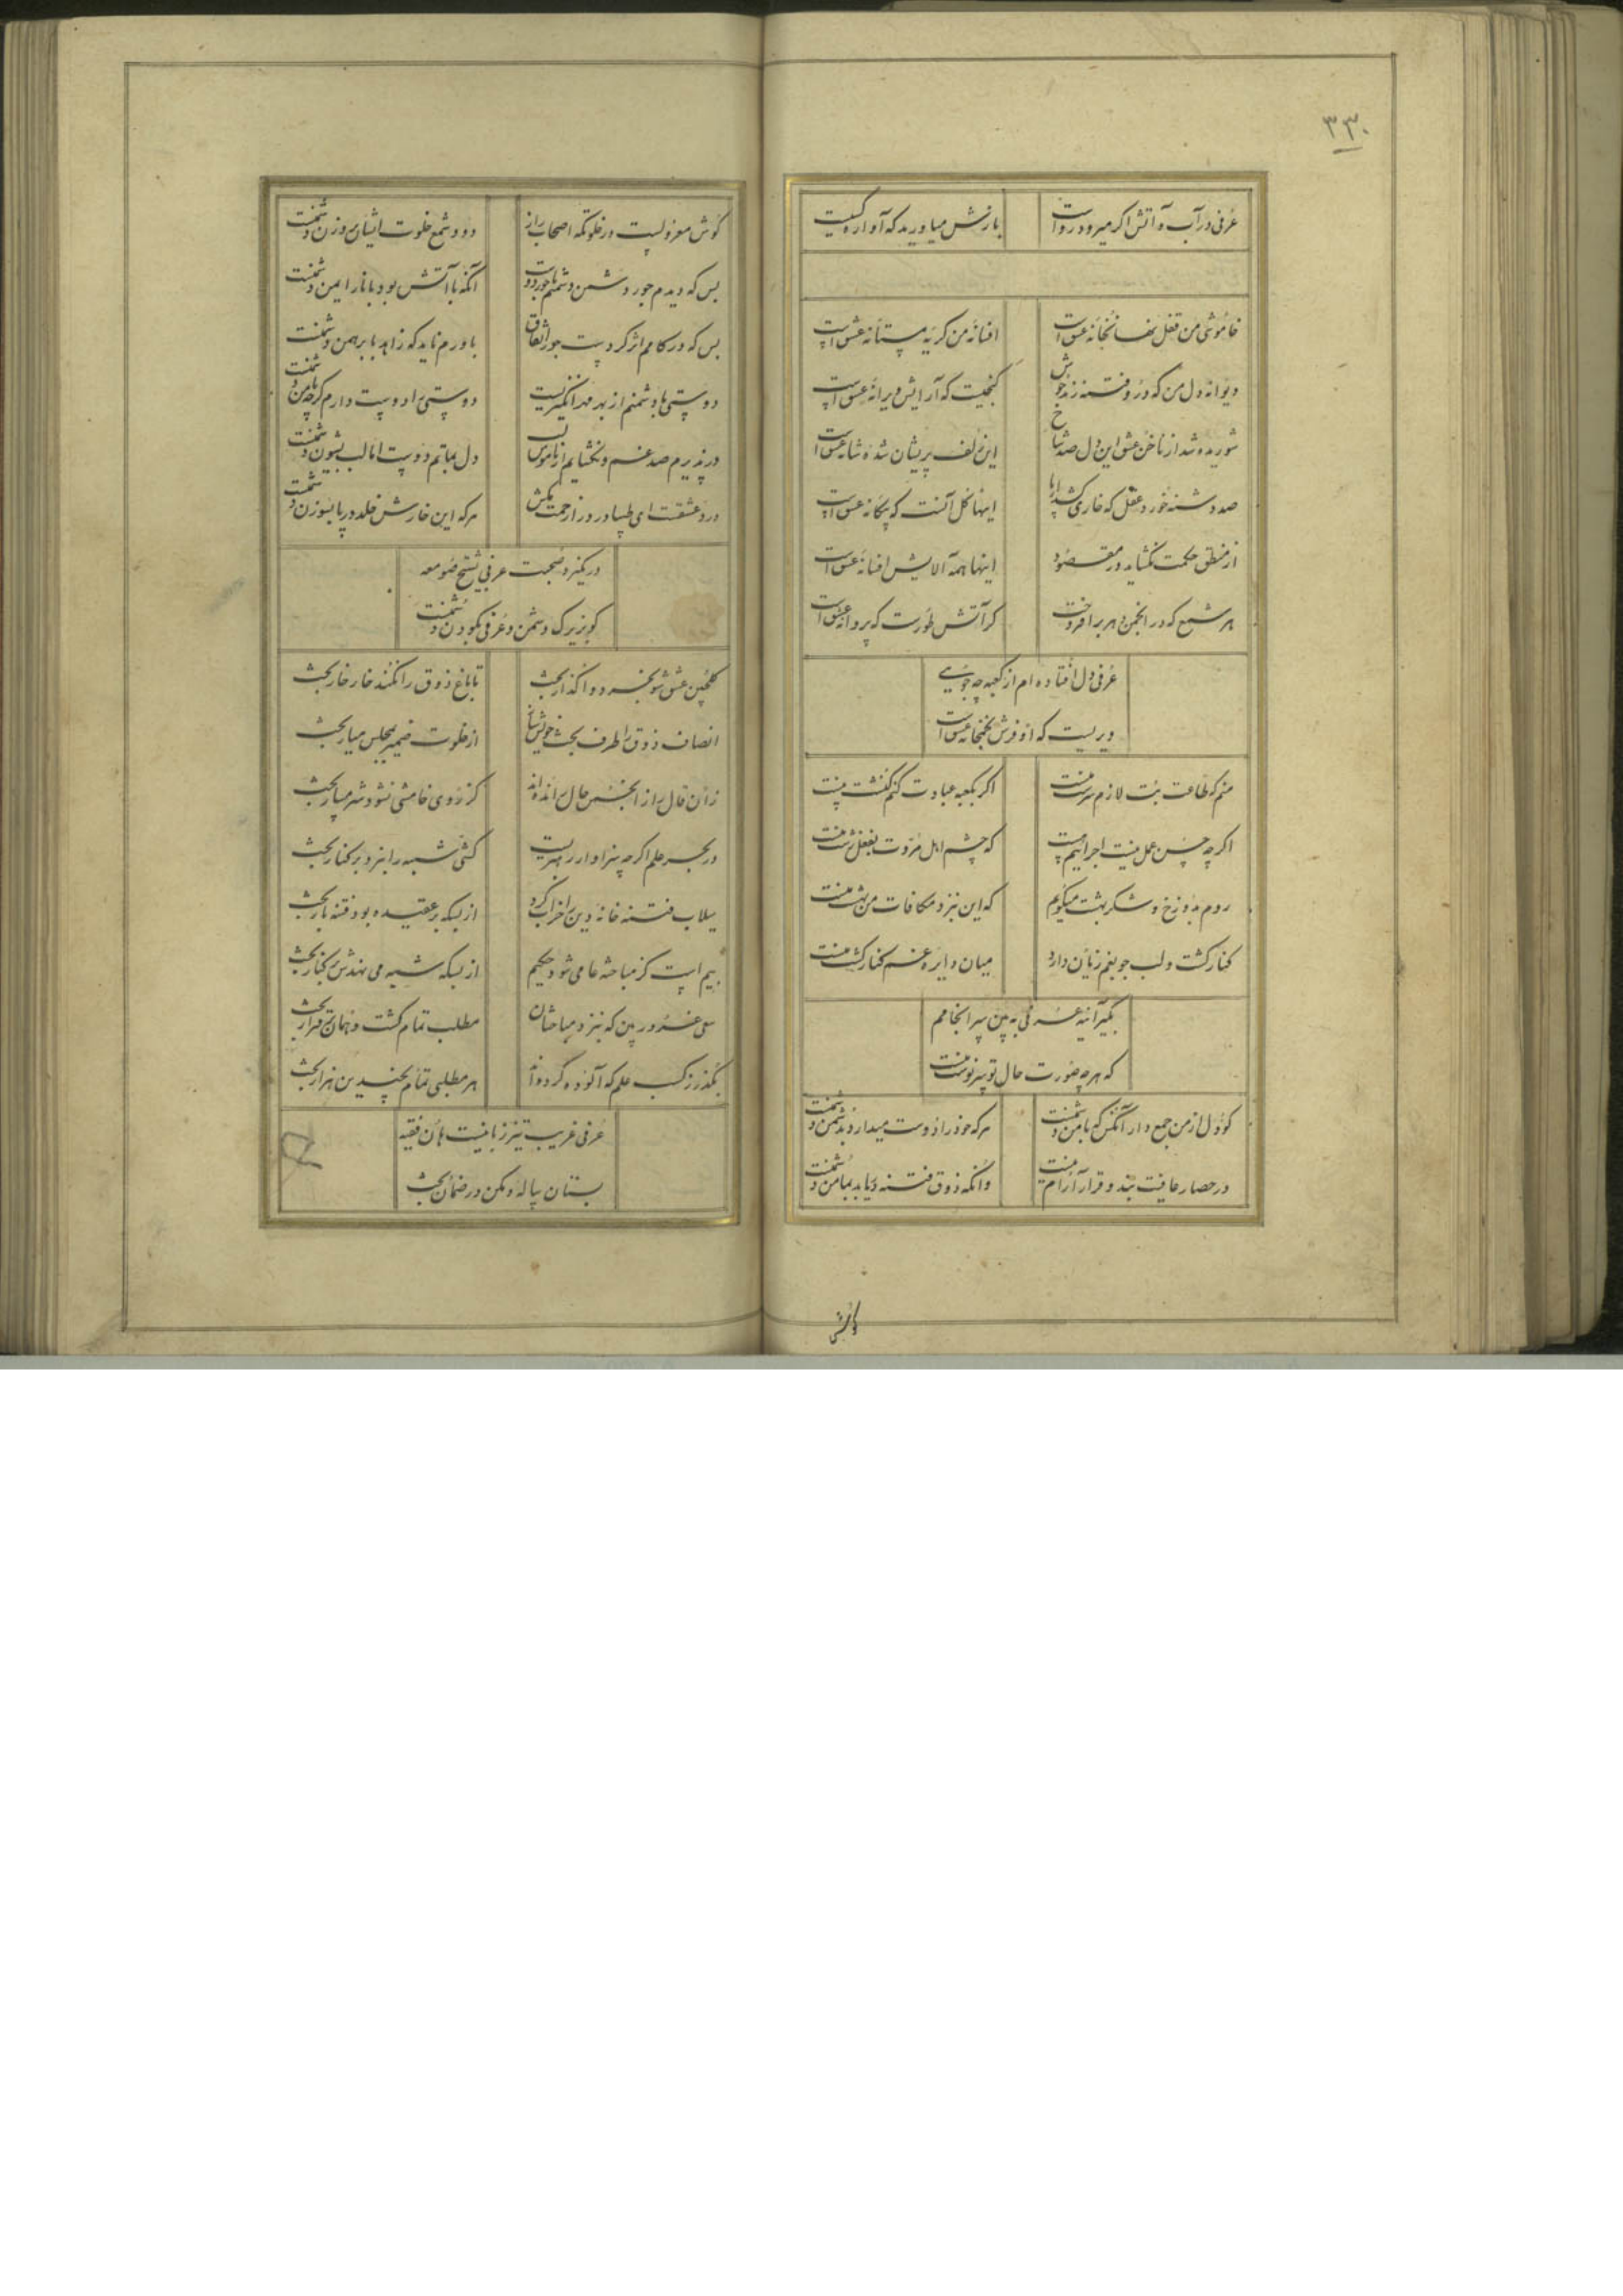 ۳۳۰
عرفی در آب و آتش اگر میرود رواست
بازش میاورید که آواره کیست
خاموشی من قفل نهانخانه عشق است
افسانه من گریه مستانه عشق است
دیوانه دل من که درو فتنه زند جوش
گنجیست که آرایش ویرانه عشق است
شوریده شد از ناخن عشق این دل صد شاخ
این زلف پریشان شده شانه عشق است
صد دشنه خورد عقل که خاری کشد از پا
اینها گل آنست که بیگانه عشق است
از منطق و حکمت نگشاید در مقصود
اینها همه آلایش افسانه عشق است
هر شمع که در انجمن دهر برافروخت
گر آتش طورست که پروانه عشق است
عرفی دل افتاده ام از کعبه چه جویی
دیریست که او فرش صنمخانه عشق است
منم که طاعت بت لازم سرشت منست
اگر بکعبه عبادت کنم کنشت منست
اگر چه حسن عمل نیست اجرانیم هست
که چشم اهل مروت بفعل زشت منست
روم بدوزخ و شکر بهشت میگویم
که این نیزد مکافات من بهشت منست
کنار کشت و لب جو بغم زیان دارد
میان دایره غم کنار کشت منست
بگیر آینه عرفی به بین سرانجامم
که هر چه صورت حال تو سرنوشت منست
کو دل از من جمع دار آنکس که با من دشمنست
هر که خود را دوست میدارد بدشمن دشمنست
در حصار عافیت بند و قرار آرام نیست
وانکه ذوق فتنه دریابد بمامن دشمنست
گوش معزولیست در خلوتگه اصحاب راز
دود شمع خلوت ایشان بروزن دشمنست
بس که دیدم جور دشمن دشمنم با خود دوست
آنکه با آتش بود با نار ایمن دشمنست
بس که در کامم اثر کردست جور اتفاق
باورم ناید که زاهد با برهمن دشمنست
دوستی با دشمنم از بهر مهر انگیزیست
دوستی را دوست دارم گرچه با من دشمنست
در پذیرم صد غم و نگشایم از ناموس لب
دل بماتم دوست اما لب بشیون دشمنست
درد عشقست ای طبیب از در زحمت مکش
هر که این خارش خلد در پا بسوزن دشمنست
در نگیرد صحبت عرفی بشیخ صومعه
کو بزیرک دشمن و عرفی بکودن دشمنست
گلچین عشق شو بخرد واگذار بحث
تا باغ ذوق را نکند خار خار بحث
انصاف ذوق را طرف بحث خویش ساز
از خلوت ضمیر بمجلس میار بحث
زان قال را ز انجمن حال رانده اند
کز روی خامشی نشود شرمسار بحث
در بحر علم اگر چه سزاوار رهبریست
کشتی شبهه را نبرد بر کنار بحث
سیلاب فتنه خانه دین را خراب کرد
از بسکه بر عقیده بود فتنه بار بحث
بیم است کز مباحثه عامی شود حکیم
از بسکه شبهه می نهدش در کنار بحث
سعی غرور بین که به نزد مباحثان
مطلب تمام گشت و همان برقرار بحث
بگذر ز کسب علم که آلوده کرده اند
هر مطلبی تمام بچندین هزار بحث
عرفی غریب تیز زبانیست هان فقیه
بستان پیاله و مکن در خمار بحث
گوش